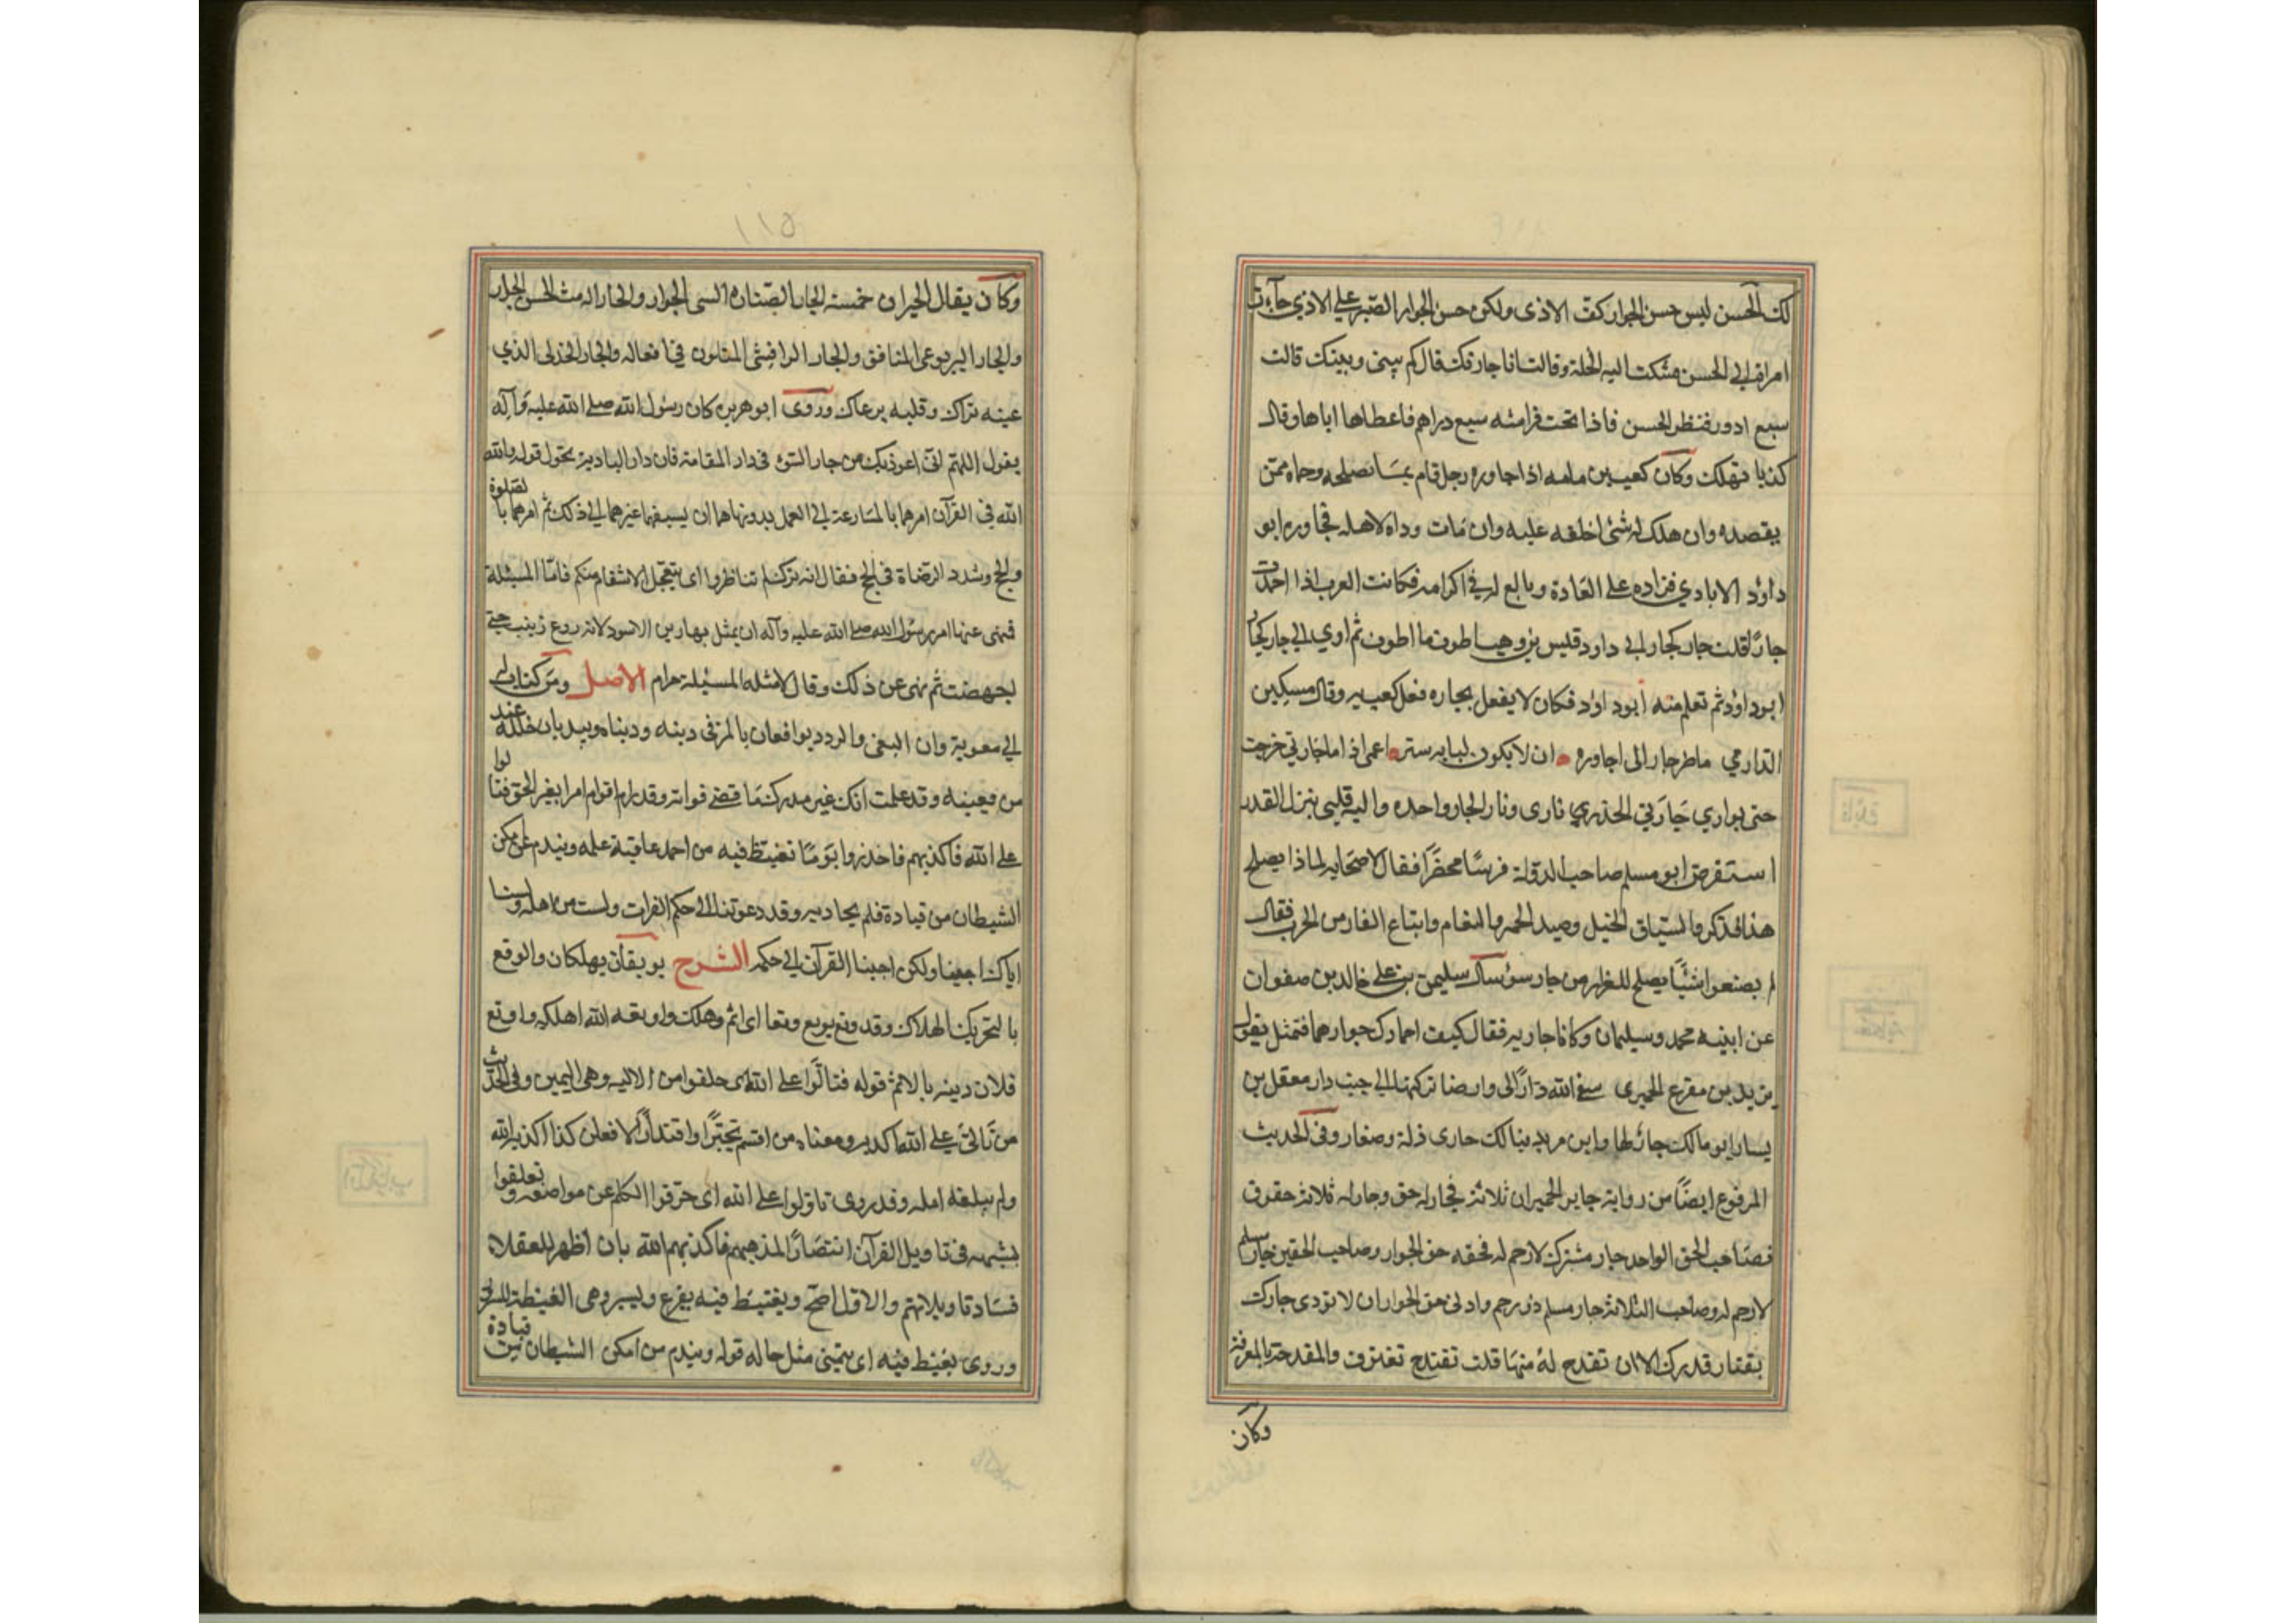 لك الحسن ليس حسن الجوار كف الاذى ولكن حسن الجوار الصبر على الاذي جآءت
امراة الى الحسن فشكت اليه الخلة وقالت انا جارتك قال كم بيني وبينك قالت
سبع ادور فنظر الحسن فاذا تحت فراشه سبع دراهم فاعطاها اياها وقال
كدنا نهلك وكان كعب بن مامه اذا جاوره رجل قام بما يصلحه وحماه ممن
يقصده وان هلك له شئ اخلفه عليه وان مات وداه لاهله فجاوره ابو
داؤد الايادي فزاده على العادة وبالغ في اكرامه فكانت العرب اذا احمدت
جارًا قلت جار كجار ابي داود قليس بن اطوف ما اطوف ثم اوي الى جار كجار
ابوداؤد ثم تعلم منه ابوداؤد فكان لا يفعل بجاره فعل كعب به وقال مسكين
الدارمي ما ضر جارا لى اجاوره ان لا يكون لبابه ستر اعمى اذا ما جارتي خرجت
حتى يواري جارتي الخدر ناري ونار الجار واحدة واليه قبلي ينزل القدر
استقرض ابو مسلم صاحب الدولة فرسًا محضرًا فقال لاصحابه لماذا يصلح
هذا فذكروا سباق الخيل وصيد الحمر والنعام واتباع الفار من الحرب فقال
لم يصنعوا شيئًا يصلح للفرار من جار سوء سأل سليمن بن على خالد بن صفوان
عن ابنيه محمد وسليمان وكانا جاريه فقال كيف احمادك جوارهما فتمثل بقول
يزيد بن مفرغ الحميرى سقى الله دارًا لى وارضا تركتها الى جنب دار معقل بن
يسار ابو مالك جار لها وابن مرثد فيا لك جارى ذلة وصغار وفى الحديث
المرفوع ايضًا من رواية جابر الجيران ثلاثة فجار له حق وجار له ثلاثة حقوق
فصاحب الحق الواحد جار مشرك لا رحم له فحقه حق الجوار وصاحب الحقين جار مسلم
لا رحم له وصاحب الثلاثة جار مسلم ذو رحم وادنى حق الجوار ان لا تؤذى جارك
بقتار قدرك الا ان تقدح له منها قلت تقتدح تغترف والمقدحة المغرفة
وكان
١١٥
وكان يقال الجيران خمسة الجار السئ الجوار والجار الحسن الجوار
والجار اليربوعى المنافق والجار البراقشى المتلون في افعاله والجار الذي
عينه تراك وقلبه يرعاك وروى ابو هريرة كان رسول الله صلى الله عليه وآله
يقول اللهم انى اعوذ بك من جار السوء فى دار المقامة فان دار البادية يتحول قوله
الله فى القرآن امرهما بالمسارعة الى العمل به ونهاهما ان يسبقهما غيرهما الى ذلك ثم امرهما بالصلوة
والحج وشدد الوصاة فى الحج فقال انه ترك لم تناظروا اى يتعجل الانتقام منكم فاما المثلة
فنهى عنها امر رسول الله صلى الله عليه وآله ان يمثل بهبار بن الاسود لانه روع زينب حتى
اجهضت ثم نهى عن ذلك وقال لا مثلة المثلة حرام الاصل ومن كتاب له
الى معوية وان البغى والزور يوقعان بالمرء فى دينه ودنياه ويبديان خلله عند
من يعيبه وقد علمت انك غير مدرك ما قضى فواته وقد رام اقوام امرا بغير الحق فتالوا
على الله فاكذبهم فاحذر يومًا يغتبط فيه من احمد عاقبة عمله ويندم من امكن
الشيطان من قياده فلم يجاذبه وقد دعوتنا الى حكم القرآن ولست من اهله ولسنا
اياك اجبنا ولكن اجبنا القرآن الى حكمه الشرح يوبقان يهلكان والوتغ
بالتحريك الهلاك وقد وتغ يوتغ وتغا اى اثم وهلك واوتغه الله اهلكه واوتغ
فلان دينه بالاثم قوله فتالوا على الله اى حلفوا من الالية وهى اليمين وفى الحديث
من تألى على الله اكذبه ومعناه من اقسم تجبرًا واقتدارًا لافعلن كذا اكذبه الله
ولم يبلغه امله وقد روى تاولوا على الله اى حرفوا الكلم عن مواضعه وتعلقوا
بشبهه فى تاويل القرآن انتصارًا لمذهبهم فاكذبهم الله بان اظهر للعقلاء
فساد تاويلاتهم والاول اصح ويغتبط فيه يفرح ويسر وهى الغبطة السرور
وروى يغبط فيه اى يتمنى مثل حاله قوله ويندم من امكن الشيطان من قيادة